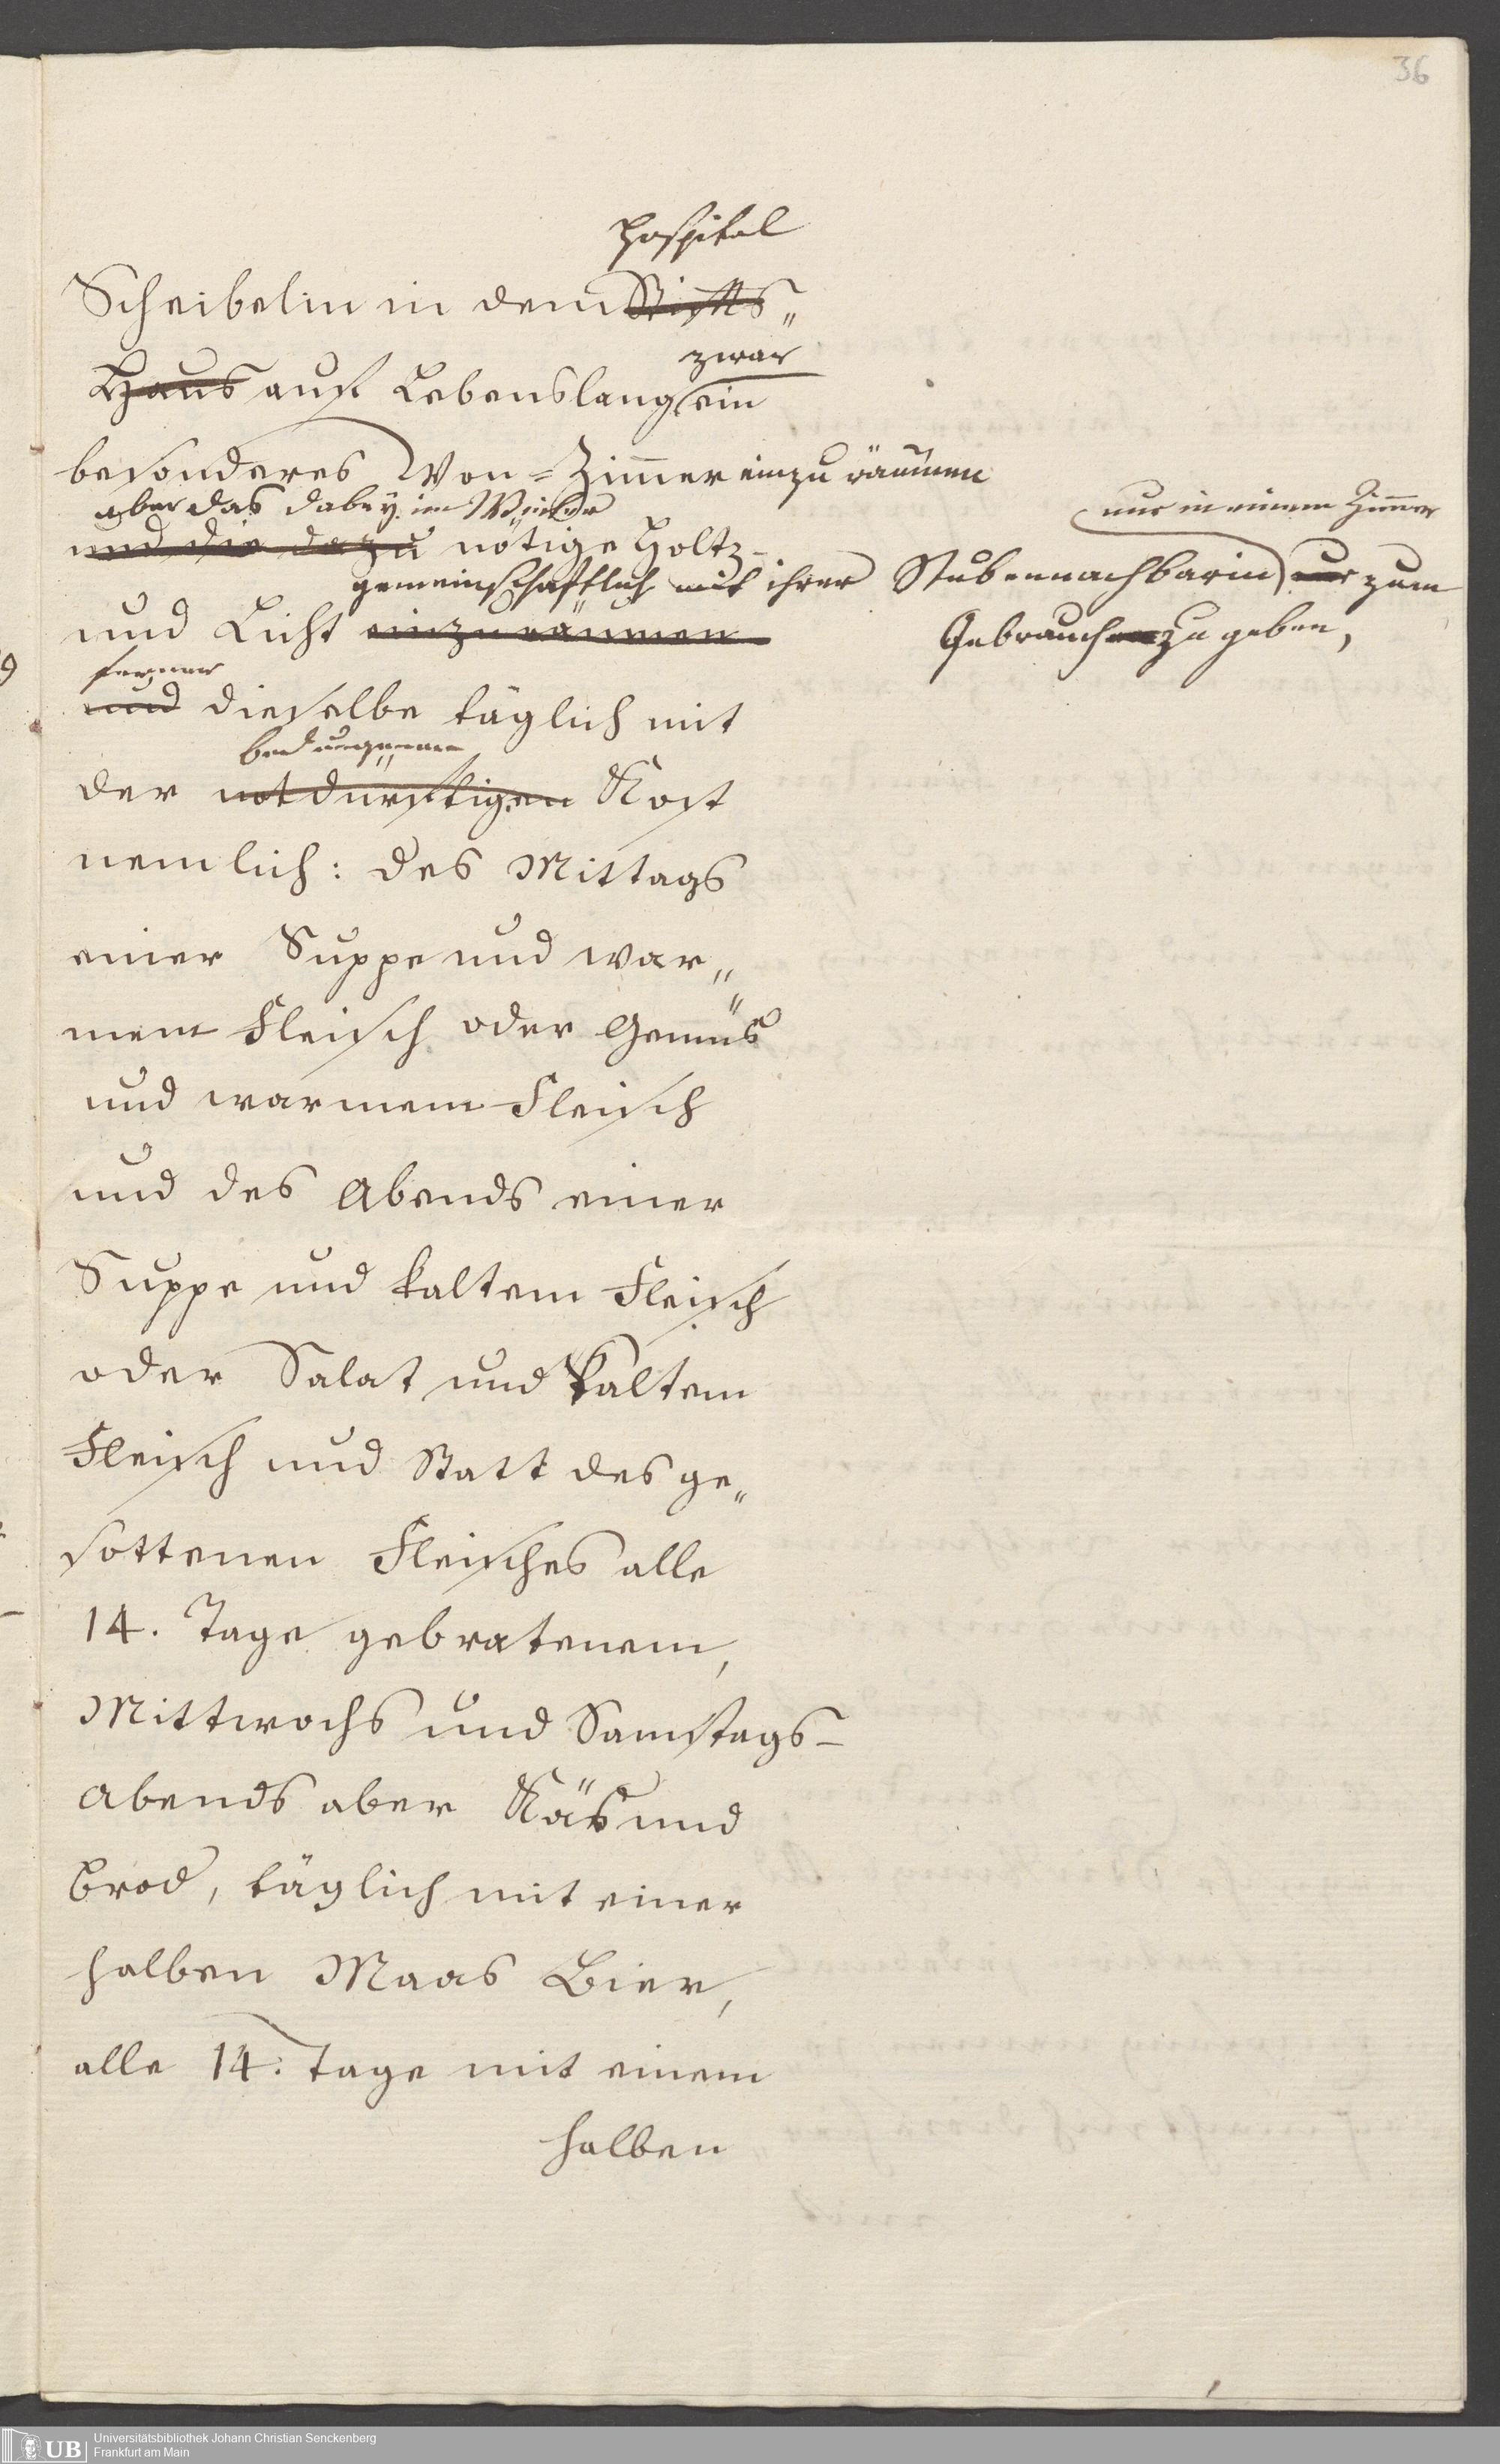 36
Hospital
Scheibelin in dem Stifts„
zwar
Haus auf Lebenslang ein
besonderes Won-Zimmer einzuräumen
aber das dabey im Winter
nur in einem Zimmer
und die dazu nötige Holtz-
gemeinschaftlich mit ihrer Stubennachbarin nur zum
und Licht einzuräumen
Gebrauch zu geben,
ferner
und dieselbe täglich mit
bedungenen
der notdürftigen Kost
nemlich: des Mittags
einer Suppe und war„
mem Fleisch oder Gemüs
und warmem Fleisch
und des Abends einer
Suppe und kaltem Fleisch
oder Salat und kaltem
Fleisch und Statt des ge„
sottenen Fleisches alle
14. Tage gebratenem,
Mittwochs und Samstags-
Abends aber Käs und
Brod, täglich mit einer
halben Maas Bier,
alle 14. Tage mit einem
halben
UB
Universitätsbibliothek Johann Christian Senckenberg
Frankfurt am Main